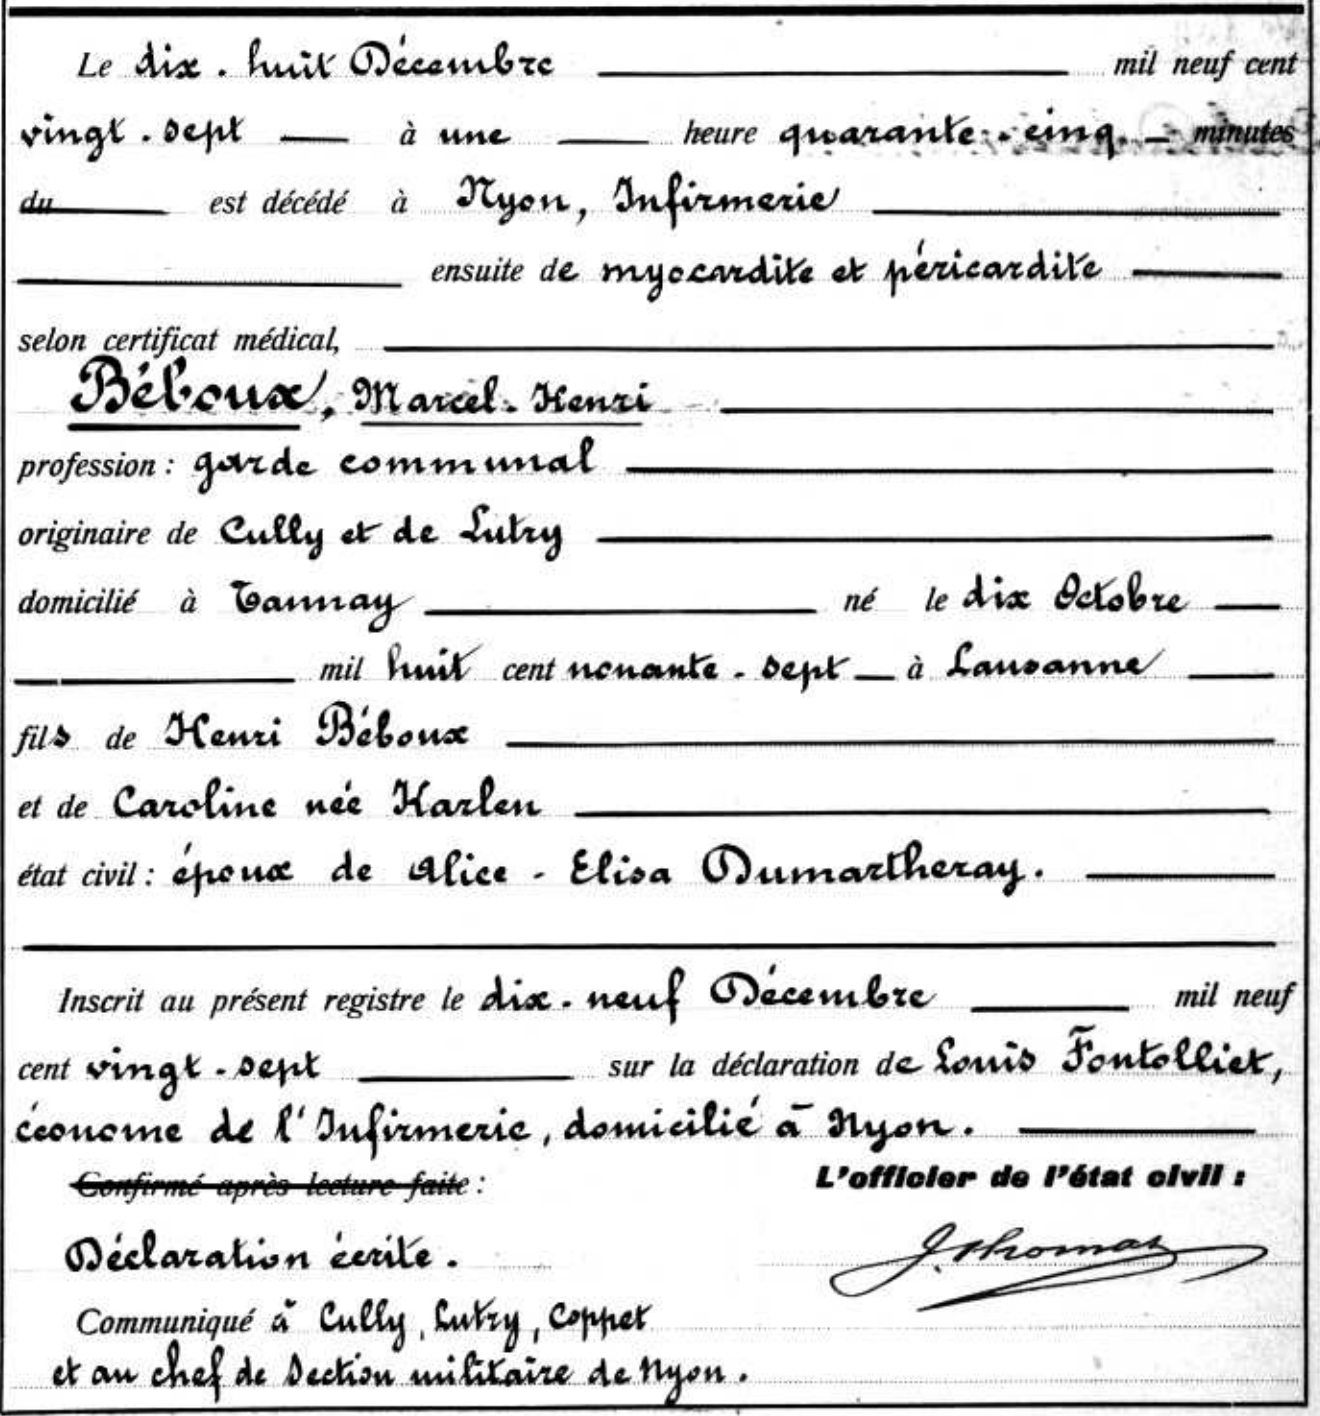 Le dix-huit Décembre mil neuf cent
vingt-sept à une heure quarante-cinq minutes
du est décédé à Nyon, Infirmerie
ensuite de myocardite et péricardite
selon certificat médical,
Béboux, Marcel-Henri
profession : garde communal
originaire de Cully et de Lutry
domicilié à Tannay né le dix Octobre
mil huit cent nonante-sept à Lausanne
fils de Henri Béboux
et de Caroline née Karlen
état civil : époux de Alice-Elisa Dumartheray.
Inscrit au présent registre le dix-neuf Décembre mil neuf
cent vingt-sept sur la déclaration de Louis Fontolliet,
économe de l'Infirmerie, domicilié à Nyon.
Confirmé après lecture faite : L'officier de l'état civil :
Déclaration écrite. J. Thomas
Communiqué à Cully, Lutry, Coppet
et au chef de Section militaire de Nyon.